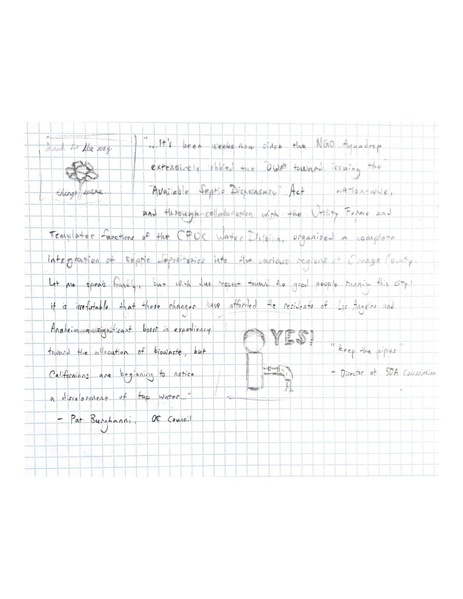 back to the way
things were
"...It's been weeks now since the NGO Aquadrop
extensively lobbied the toward issuing the
"Available Septic Dispensary" Act nationwide,
and through collaboration with the Utility Forms and
Templator functions of the CPOC Water Division, organized a complete
integration of septic depositories into the various regions of Orange County.
Let me speak frankly, but with due respect toward the good people running this city:
it is irrefutable that these changes have afforded the residents of Los Angeles and
Anaheim a significant boost in expediency
toward the allocation of biowaste, but
Californians are beginning to notice
a discolorment of tap water..."
- Pat , OC Council
YES!
"keep the pipes"
- Director of SDA